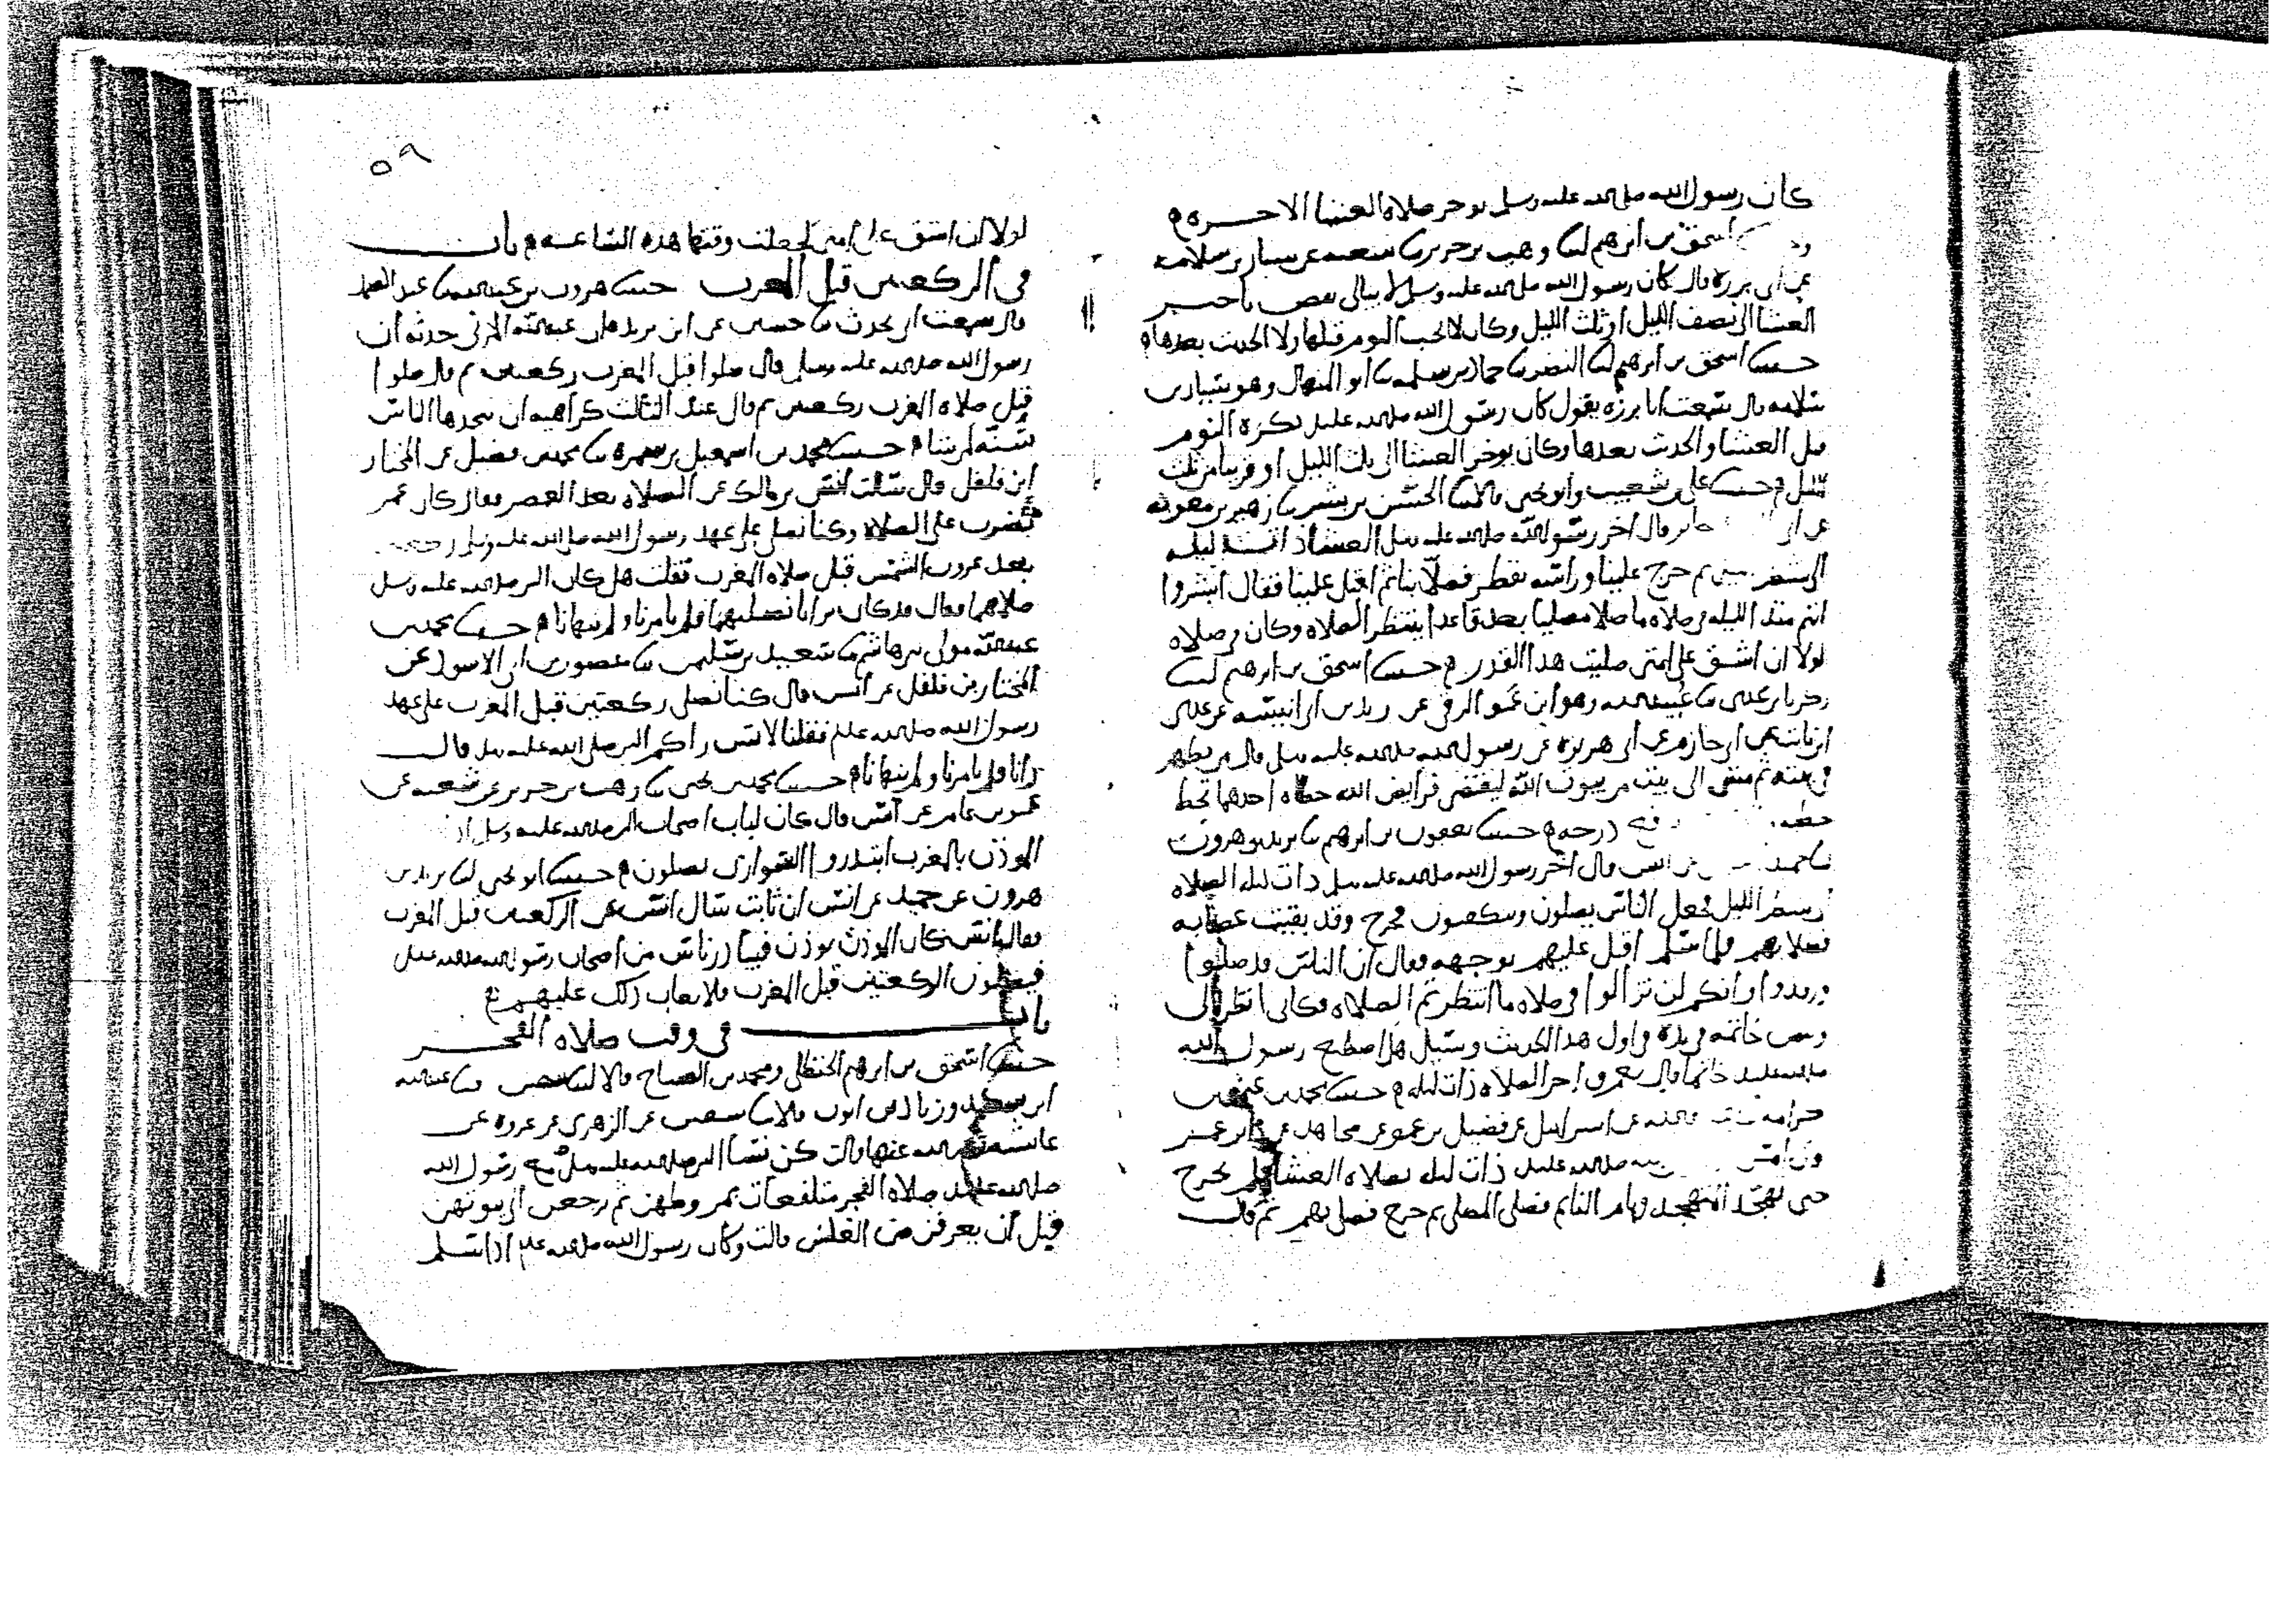 كان رسول الله صلى الله عليه وسلم يوخر صلاه العشا الاخره
اسحق بن ابرهيم ابنا وهب بن جرير نا شعبه عن سيار بن سلامه
عن ابي برزه قال كان رسول الله صلى الله عليه وسلم لا يبالي بعض تاخير
العشا الى نصف الليل او ثلث الليل وكان لا يحب النوم قبلها ولا الحديث بعدها
حدثنا اسحق بن ابرهيم ابنا النضر نا حماد بن سلمه نا ابو المنهال وهو سيار بن
سلامه قال سمعت ابا برزه يقول كان رسول الله صلى الله عليه يكره النوم
قبل العشا والحديث بعدها وكان يوخر العشا الى ثلث الليل او قريبا من ثلث
الليل حدثنا علي بن شعيب وابو يحيى قالا ابنا الحسن بن بشر نا زهير بن معويه
قال اخر رسول الله صلى الله عليه وسلم العشا ذات ليله
الى شطر ثم خرج علينا وراسه يقطر فصلا بنا ثم اقبل علينا فقال ابشروا
انتم منذ الليله في صلاه ما صلاها مصليا بعد قاعدا ينتظر الصلاه وكان في صلاه
لولا ان اشق على امتي صليت هذا القدر حدثنا اسحق بن ابرهيم ابنا
زكريا بن عدي نا عبيد الله وهو ابن عمرو الرقي عن زيد بن ابي انيسه عن عدي
ابن ثابت عن ابي حازم عن ابي هريره عن رسول الله صلى الله عليه وسلم قال من تطهر
في بيته ثم مشى الى بيت من بيوت الله ليقضي فرايض الله خطاه احدهما تحط
درجه حدثنا يعقوب بن ابرهيم نا يزيد بن هرون
انس قال اخر رسول الله صلى الله عليه وسلم ذات ليله الصلاه
الليل فجعل الناس يصلون وينكفون فخرج وقد بقيت عصابه
فصلا بهم فلما سلم اقبل عليهم بوجهه فقال ان الناس قد صلوا
ورقدوا وانكم لن تزالوا في صلاه ما انتظرتم الصلاه فكاني انظر الى
وبيص خاتمه في يده في اول هذا الحديث وسيل هل اصطنع رسول الله
صلى الله عليه خاتما قال نعم واخر الصلاه ذات ليله حدثنا محمد بن
عن اسرايل عن فضيل بن عمرو عن مجاهد عن ابن عمر
صلى الله عليه ذات ليله بصلاه العشا فلم يخرج
حتى تهجد المتهجد ونام النايم فصلى المصلي ثم خرج فصلى بهم ثم قال
٥٩
لولا ان اشق على امتي لجعلت وقتها هذه الساعه باب
في الركعتين قبل المغرب حدثنا هرون بن عبد الله نا عبد الصمد
قال سمعت ابي يحدث نا حسين عن ابن بريده ان عبد الله المزني حدثه ان
رسول الله صلى الله عليه وسلم قال صلوا قبل المغرب ركعتين ثم قال صلوا
قبل صلاه المغرب ركعتين ثم قال عند الثالث كراهيه ان يتخذها الناس
سنه لمن شا حدثنا محمد بن اسمعيل بن سمره نا محمد بن فضيل عن المختار
ابن فلفل قال سالت انس بن مالك عن الصلاه بعد العصر فقال كان عمر
يضرب على الصلاه وكنا نصلي على عهد رسول الله صلى الله عليه وسلم ركعتين
بعد غروب الشمس قبل صلاه المغرب فقلت هل كان النبي صلى الله عليه وسلم
صلاهما فقال قد كان يرانا نصليهما فلم يامرنا ولم ينهانا حدثنا محمد بن
عبد الله مولى بني هاشم نا سعيد بن سليمن نا منصور بن ابي الاسود عن
المختار بن فلفل عن انس قال كنا نصلي ركعتين قبل المغرب على عهد
رسول الله صلى الله عليه فقلنا لانس راكم النبي صلى الله عليه وسلم قال
رانا فلم يامرنا ولم ينهانا حدثنا محمد بن يحيى نا وهب بن جرير عن شعبه عن
عمرو بن عامر عن انس قال كان لباب اصحاب النبي صلى الله عليه وسلم اذا
الموذن بالمغرب ابتدروا السواري يصلون حدثنا ابو يحيى ابنا يزيد بن
هرون عن حميد عن انس ان ثابت سال انس عن الركعتين قبل المغرب
فقال انس كان الموذن يوذن فيبادر ناس من اصحاب رسول الله صلى الله عليه
فيصلون الركعتين قبل المغرب فلا يعاب ذلك عليهم
باب في وقت صلاه الفجر
حدثنا اسحق بن ابرهيم الحنظلي ومحمد بن الصباح قالا ابنا سفين ونا عبد الله
ابن سعيد وزياد بن ايوب قالا نا سفين عن الزهري عن عروه عن
عايشه رضي الله عنها قالت كن نسا النبي صلى الله عليه يصلين مع رسول الله
صلى الله عليه صلاه الفجر متلفعات بمروطهن ثم يرجعن الى بيوتهن
قبل ان يعرفن من الغلس قالت وكان رسول الله صلى الله عليه اذا سلم